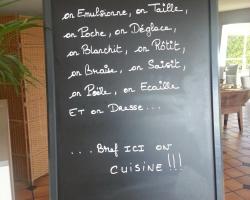 on Emulsionne, on Taille,
on Poche, on Déglace,
on Blanchit, on Rôtit,
on Braise, on Saisit,
on Poêle, on Ecaille
ET on Dresse...
... Bref ICI ON
CUISINE !!!